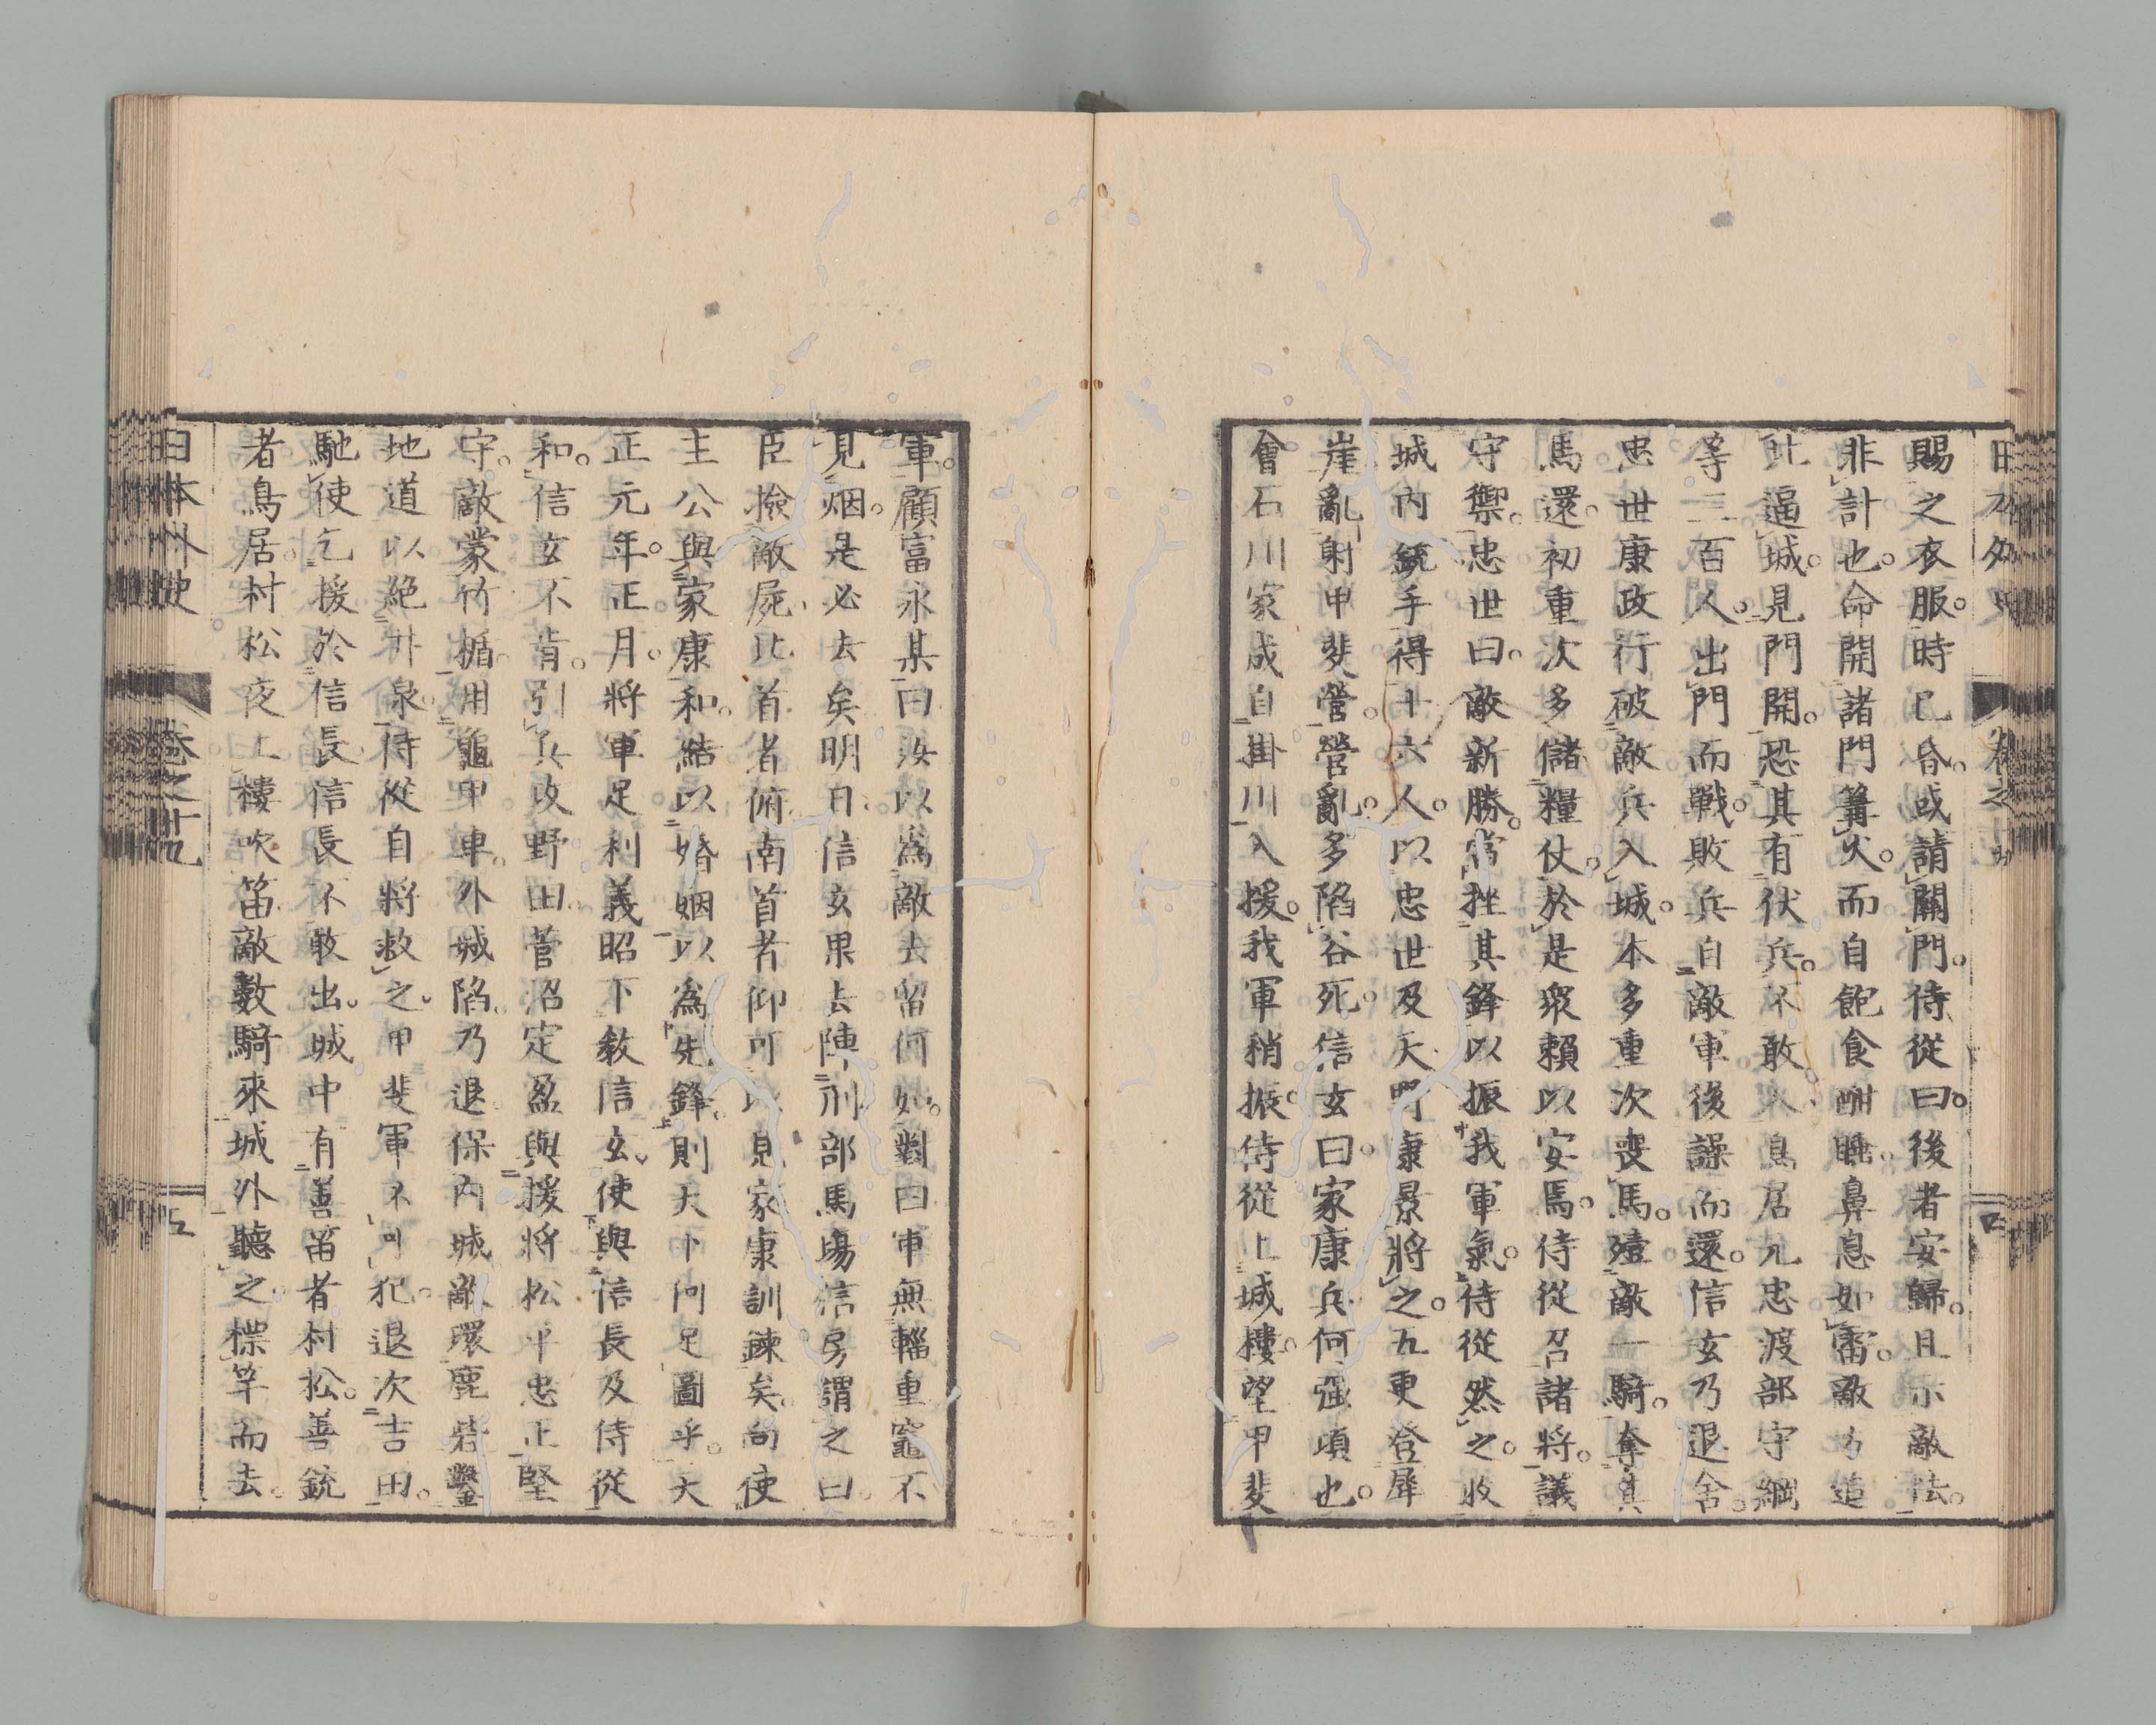 賜之衣服。時已昏。或請關門。侍從曰。後者安歸。且示敵怯。
非計也。命開諸門篝火。而自飽食酣睡。鼻息如雷。敵乃追
北逼城。見門開。恐其有伏兵。不敢入。鳥居元忠渡部守綱
等三百人。出門而戰。敗兵自敵軍後譟而還。信玄乃退舍。
忠世康政行破敵兵入城。本多重次喪馬。殪敵一騎。奪其
馬還。初重次多儲糧仗。於是衆賴以安焉。侍從召諸將。議
守禦。忠世曰。敵新勝。當挫其鋒以振我軍氣。侍從然之。收
城內銃手得十六人。以忠世及天野康景將之。五更登犀
崖亂射甲斐營。營亂。多陷谷死。信玄曰。家康兵何强項也。
會石川家成自掛川入援。我軍稍振。侍從上城樓。望甲斐
軍。顧富永某曰。汝以爲敵去留何如。對曰。軍無輜重竈不
見烟。是必去矣。明日。信玄果去陣刑部。馬塲信房謂之曰。
臣撿敵屍。北首者俯。南首者仰。可以見家康訓鍊矣。向使
主公與家康和。結以婚姻以爲先鋒。則天下何足圖乎。天
正元年。正月。將軍足利義昭下敎信玄。使與信長及侍從
和。信玄不肯。引兵攻野田。菅沼定盈與援將松平忠正堅
守。敵蒙竹楯。用龜甲車。外城陷。乃退保內城。敵環鹿砦。鑿
地道以絕井泉。侍從自將救之。甲斐軍不可犯。退次吉田。
馳使乞援於信長。信長不敢出。城中有善笛者村松。善銃
者鳥居。村松夜上樓吹笛。敵數騎來城外聽之。標竿而去。
日本外史 卷之十九 五